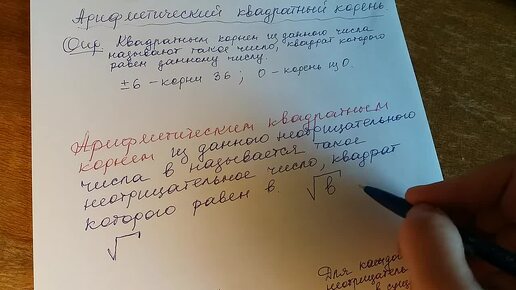 Арифметический квадратный корень.
Опр. Квадратным корнем из данного числа
называют такое число, квадрат которого
равен данному числу.
±6 – корни 36 ; 0 – корень из 0.
Арифметическим квадратным
корнем из данного неотрицательного
числа в называется такое
неотрицательное число, квадрат
которого равен в. √в
√
Для каждого
неотрицатель
в сущ